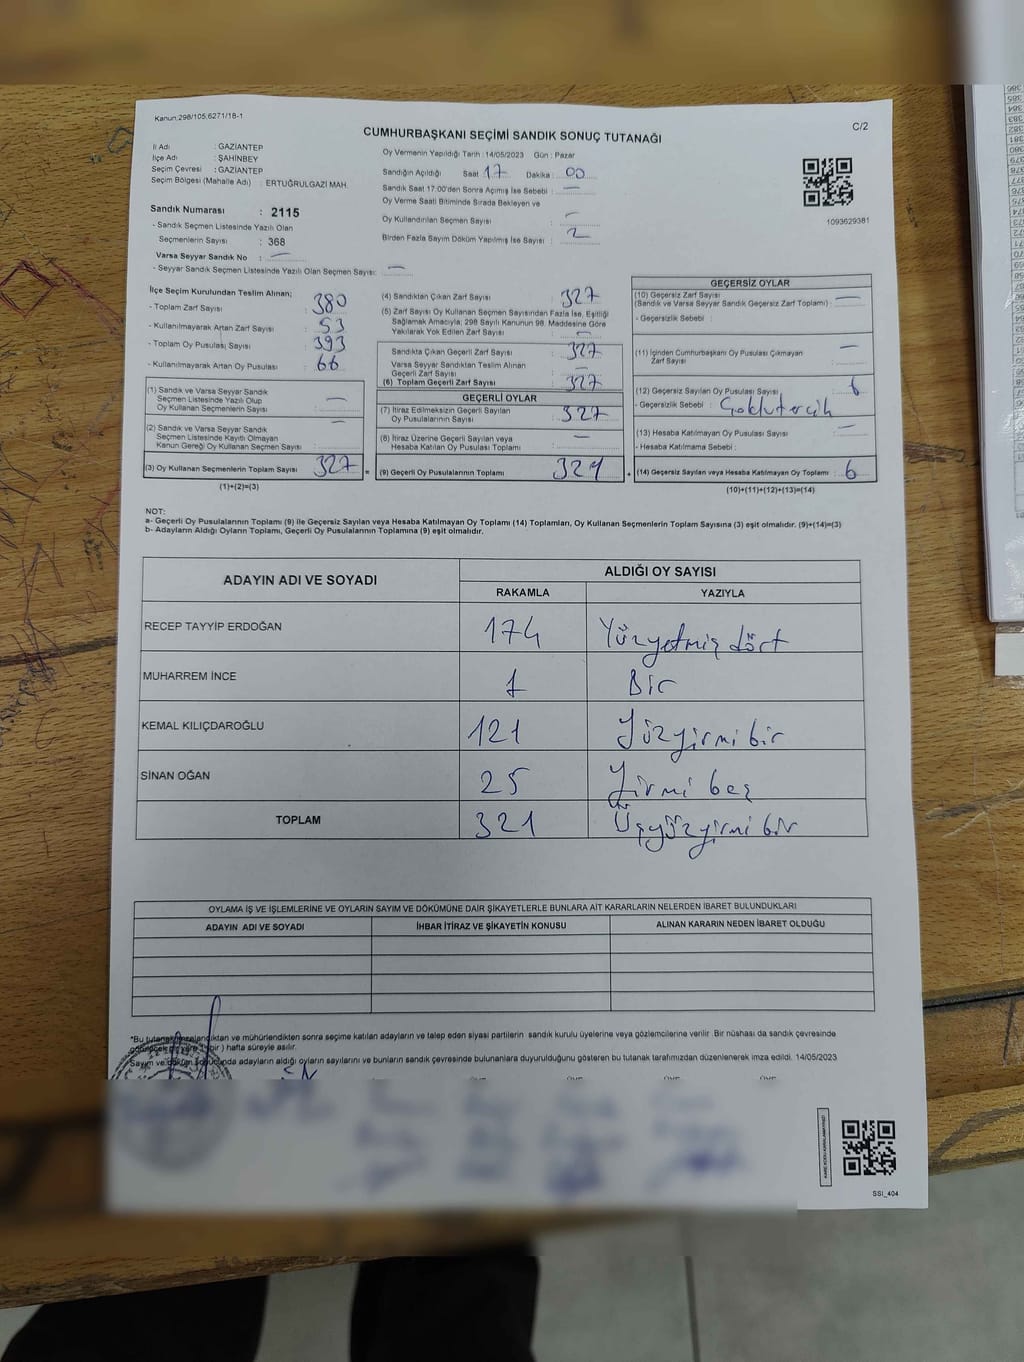 Kanun:298/105;6271/18-1
C/2
CUMHURBAŞKANI SEÇİMİ SANDIK SONUÇ TUTANAĞI
İl Adı : GAZİANTEP
İlçe Adı : ŞAHİNBEY
Seçim Çevresi : GAZİANTEP
Seçim Bölgesi (Mahalle Adı) : ERTUĞRULGAZİ MAH.
Sandık Numarası : 2115
- Sandık Seçmen Listesinde Yazılı Olan
Seçmenlerin Sayısı : 368
Varsa Seyyar Sandık No : —
- Seyyar Sandık Seçmen Listesinde Yazılı Olan Seçmen Sayısı: —
Oy Vermenin Yapıldığı Tarih : 14/05/2023 Gün : Pazar
Sandığın Açıldığı Saat 17 Dakika : 00
Sandık Saat 17:00'den Sonra Açılmış İse Sebebi : —
Oy Verme Saati Bitiminde Sırada Bekleyen ve
Oy Kullandırılan Seçmen Sayısı : —
Birden Fazla Sayım Döküm Yapılmış İse Sayısı : 2
1093629381
İlçe Seçim Kurulundan Teslim Alınan;
- Toplam Zarf Sayısı : 380
- Kullanılmayarak Artan Zarf Sayısı : 53
- Toplam Oy Pusulası Sayısı : 393
- Kullanılmayarak Artan Oy Pusulası : 66
(1) Sandık ve Varsa Seyyar Sandık
Seçmen Listesinde Yazılı Olup
Oy Kullanan Seçmenlerin Sayısı : —
(2) Sandık ve Varsa Seyyar Sandık
Seçmen Listesinde Kayıtlı Olmayan
Kanun Gereği Oy Kullanan Seçmen Sayısı : —
(3) Oy Kullanan Seçmenlerin Toplam Sayısı : 327 =
(1)+(2)=(3)
(4) Sandıktan Çıkan Zarf Sayısı : 327
(5) Zarf Sayısı Oy Kullanan Seçmen Sayısından Fazla İse, Eşitliği
Sağlamak Amacıyla, 298 Sayılı Kanunun 98. Maddesine Göre
Yakılarak Yok Edilen Zarf Sayısı : —
Sandıkta Çıkan Geçerli Zarf Sayısı : 327
Varsa Seyyar Sandıktan Teslim Alınan
Geçerli Zarf Sayısı : —
(6) Toplam Geçerli Zarf Sayısı : 327
GEÇERLİ OYLAR
(7) İtiraz Edilmeksizin Geçerli Sayılan
Oy Pusulalarının Sayısı : 327
(8) İtiraz Üzerine Geçerli Sayılan veya
Hesaba Katılan Oy Pusulası Toplamı : —
(9) Geçerli Oy Pusulalarının Toplamı : 321 +
GEÇERSİZ OYLAR
(10) Geçersiz Zarf Sayısı : —
(Sandık ve Varsa Seyyar Sandık Geçersiz Zarf Toplamı)
- Geçersizlik Sebebi :
(11) İçinden Cumhurbaşkanı Oy Pusulası Çıkmayan
Zarf Sayısı : —
(12) Geçersiz Sayılan Oy Pusulası Sayısı : 6
- Geçersizlik Sebebi :
(13) Hesaba Katılmayan Oy Pusulası Sayısı : —
- Hesaba Katılmama Sebebi :
(14) Geçersiz Sayılan veya Hesaba Katılmayan Oy Toplamı : 6
(10)+(11)+(12)+(13)=(14)
NOT:
a- Geçerli Oy Pusulalarının Toplamı (9) ile Geçersiz Sayılan veya Hesaba Katılmayan Oy Toplamı (14) Toplamları, Oy Kullanan Seçmenlerin Toplam Sayısına (3) eşit olmalıdır. (9)+(14)=(3)
b- Adayların Aldığı Oyların Toplamı, Geçerli Oy Pusulalarının Toplamına (9) eşit olmalıdır.
ADAYIN ADI VE SOYADI
ALDIĞI OY SAYISI
RAKAMLA YAZIYLA
RECEP TAYYİP ERDOĞAN 174 Yüzyetmiş dört
MUHARREM İNCE 1 Bir
KEMAL KILIÇDAROĞLU 121 Yüzyirmi bir
SİNAN OĞAN 25 Yirmi beş
TOPLAM 321 Üçyüzyirmi bir
OYLAMA İŞ VE İŞLEMLERİNE VE OYLARIN SAYIM VE DÖKÜMÜNE DAİR ŞİKAYETLERLE BUNLARA AİT KARARLARIN NELERDEN İBARET BULUNDUKLARI
ADAYIN ADI VE SOYADI İHBAR İTİRAZ VE ŞİKAYETİN KONUSU ALINAN KARARIN NEDEN İBARET OLDUĞU
ve mühürlendikten sonra seçime katılan adayların ve talep eden siyasi partilerin sandık kurulu üyelerine veya gözlemcilerine verilir. Bir nüshası da sandık çevresinde
hafta süreyle asılır.
adayların aldığı oyların sayılarını ve bunların sandık çevresinde bulunanlara duyurulduğunu gösteren bu tutanak tarafımızdan düzenlenerek imza edildi. 14/05/2023
SSI_404